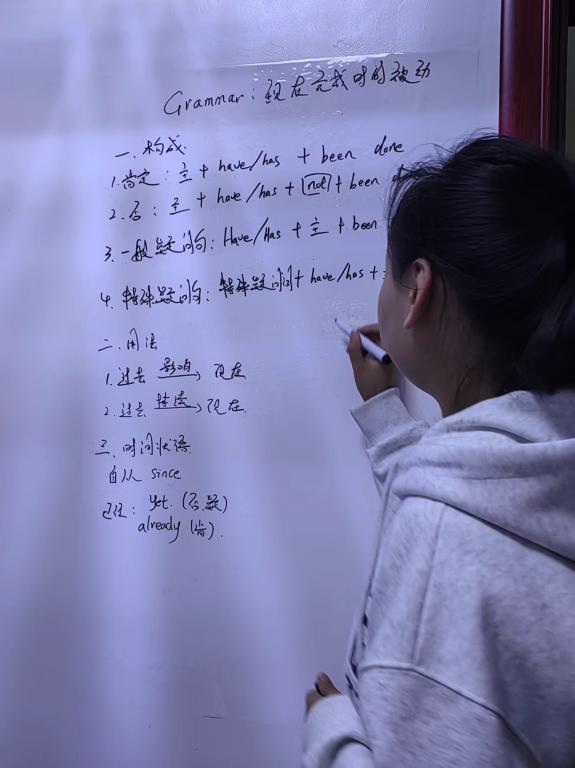 Grammar: 现在完成时的被动
一、构成
1. 肯定: 主 + have/has + been done
2. 否: 主 + have/has + not + been
3. 一般疑问句: Have/Has + 主 + been
4. 特殊疑问句: 特殊疑问词 + have/has +
二、用法
1. 过去 影响→ 现在
2. 过去 持续→ 现在
三、时间状语
自从 since
已经: yet. (否.疑)
already (肯).